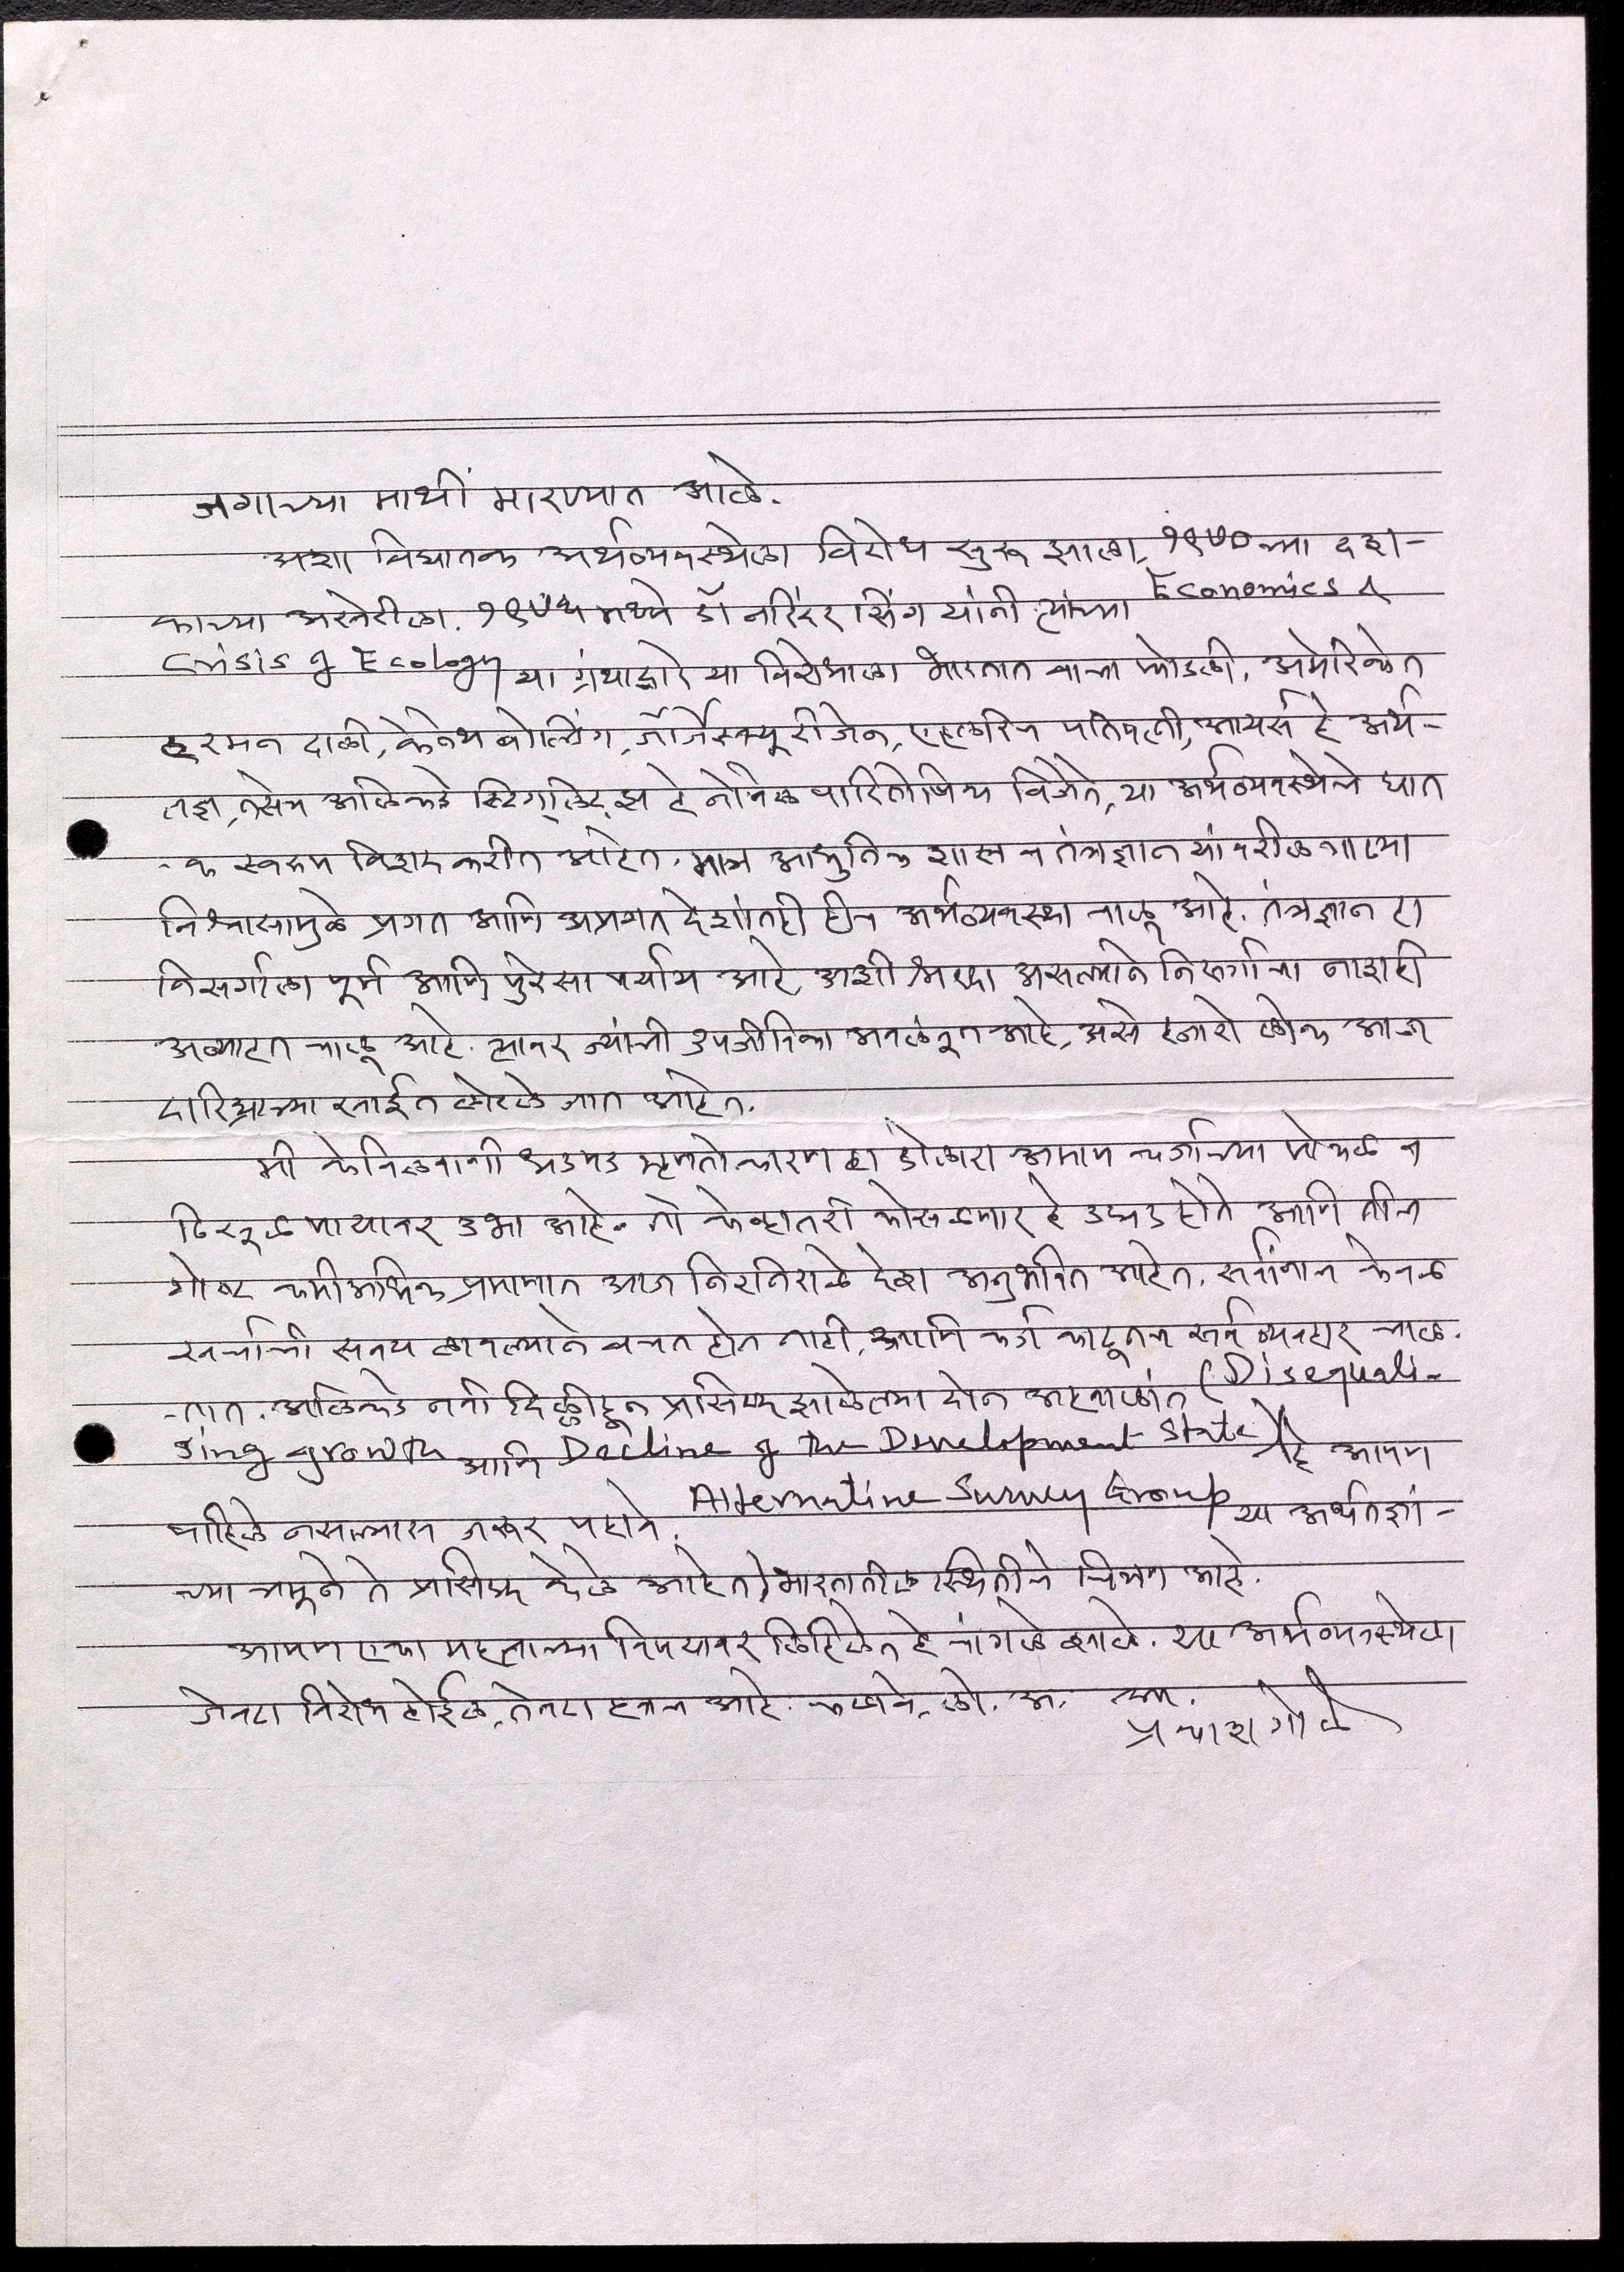 जगाच्या माथीं मारण्यात आले.
अशा विघातक अर्थव्यवस्थेला विरोध सुरू झाला, १९७० च्या दश-
काच्या अखेरीला. १९७५ मध्ये डॉ नरिंदर सिंग यांनी त्यांच्या Economics &
Crisis of Ecology या ग्रंथाद्वारे या विरोधाला भारतात वाचा फोडली. अमेरिकेत
हरमन दाली, केनेथ बोल्डिंग, जॉर्जेस्क्यू रोजेन, एहलरिच पतिपत्नी, आयर्स हे अर्थ-
तज्ञ, तसेच अलिकडे स्टिग्लिट्झ हे नोबेल पारितोषिक विजेते, या अर्थव्यवस्थेचे घात
-क स्वरूप विशद करीत आहेत. मात्र आधुनिक शास्त्र व तंत्रज्ञान यांवरील गाढ्या
विश्वासामुळे प्रगत आणि अप्रगत देशांतही हीच अर्थव्यवस्था चालू आहे. तंत्रज्ञान हा
निसर्गाला पूर्ण आणि पुरेसा पर्याय आहे अशी श्रद्धा असल्याने निसर्गाचा नाशही
अव्याहत चालू आहे. त्यावर ज्यांची उपजीविका अवलंबून आहे, असे हजारो लोक आज
दारिद्र्याच्या खाईत लोटले जात आहेत.
मी केविलवाणी धडपड म्हणतो कारण हा डोलारा अमाप कर्जाच्या पोकळ व
ठिसूळ पायावर उभा आहे. तो केव्हातरी कोसळणार हे उघड होते आणि तीच
गोष्ट कमीअधिक प्रमाणात आज निरनिराळे देश अनुभवित आहेत. सर्वांनाच केवळ
खर्चाची सवय लावल्याने बचत होत नाही, आणि कर्ज काढूनच सर्व व्यवहार चाल-
-तात. अलिकडे नवी दिल्लीहून प्रसिध्द झालेल्या दोन अहवालांत (Disequali-
sing growth आणि Decline of the Development State हे आपण
पाहिले नसल्यास जरूर पहावे. Alternative Survey Group या अर्थतज्ञां-
च्या चमूने ते प्रसिध्द केले आहेत) भारतातील स्थितीचे चित्रण आहे.
आपण एका महत्वाच्या विषयावर लिहिलेत हे चांगले झाले. या अर्थव्यवस्थेला
जेवढा विरोध होईल, तेवढा हवाच आहे. कळावे, लो. अ. आ.
प्रकाश गोळे